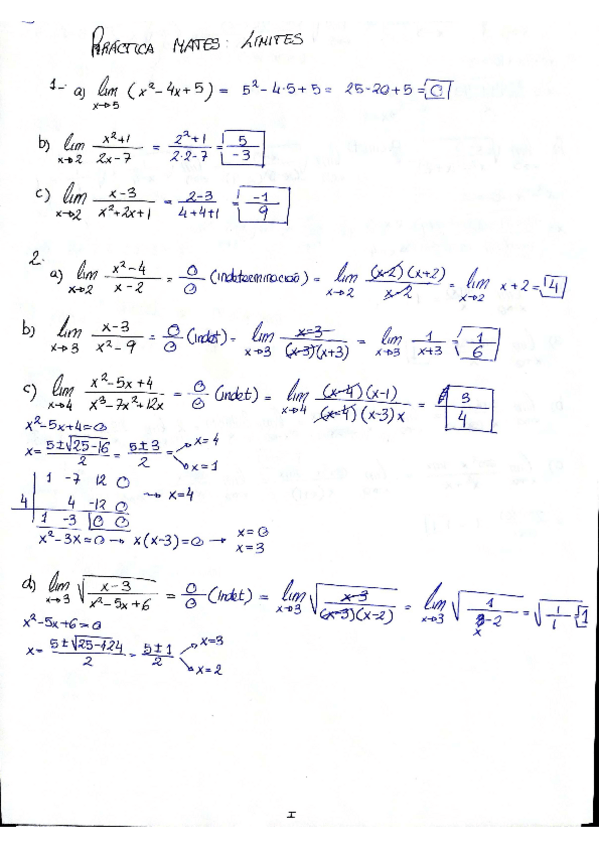 PRÁCTICA MATES: LÍMITES
1.- a) lim x→5 (x²-4x+5) = 5²-4·5+5 = 25-20+5 = 0
b) lim x→2 (x²+1)/(2x-7) = (2²+1)/(2·2-7) = 5/-3
c) lim x→2 (x-3)/(x²+2x+1) = (2-3)/(4+4+1) = -1/9
2.
a) lim x→2 (x²-4)/(x-2) = 0/0 (indeterminació) = lim x→2 (x-2)(x+2)/(x-2) = lim x→2 x+2 = 4
b) lim x→3 (x-3)/(x²-9) = 0/0 (indet) = lim x→3 (x-3)/((x-3)(x+3)) = lim x→3 1/(x+3) = 1/6
c) lim x→4 (x²-5x+4)/(x³-7x²+12x) = 0/0 (indet) = lim x→4 (x-4)(x-1)/((x-4)(x-3)x) = 3/4
x²-5x+4=0
x = (5±√25-16)/2 = (5±3)/2 → x=4
→ x=1
1 -7 12 0
4 | 4 -12 0 → x=4
1 -3 |0 0
x²-3x=0 → x(x-3)=0 → x=0
x=3
d) lim x→3 √((x-3)/(x²-5x+6)) = 0/0 (indet) = lim x→3 √((x-3)/((x-3)(x-2))) = lim x→3 √(1/(x-2)) = √(1/1) = 1
x²-5x+6=0
x = (5±√25-24)/2 = (5±1)/2 → x=3
→ x=2
I